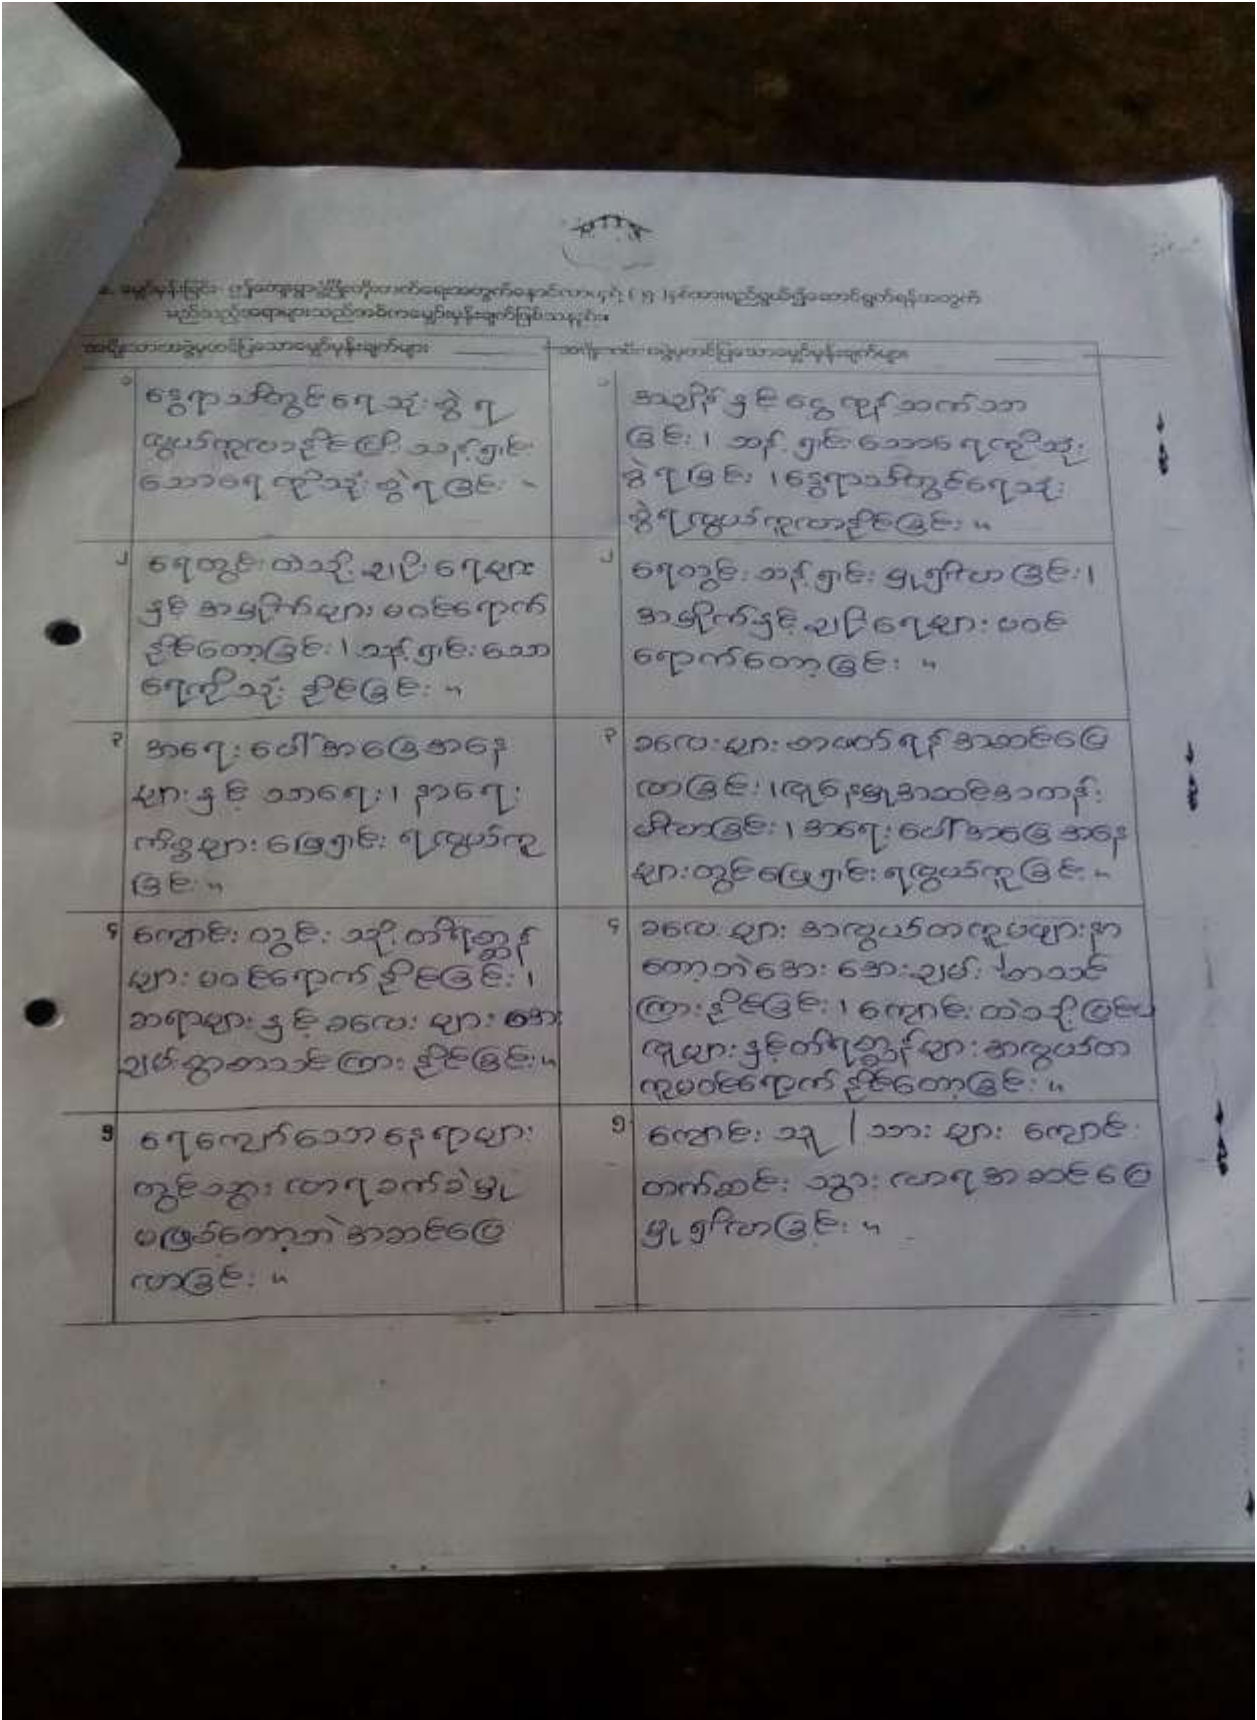 မျှော်မှန်းခြင်း၊ ဤကျေးရွာဖွံ့ဖြိုးတိုးတက်ရေးအတွက်နောင်လာမည့် ( ၅ )နှစ်အားရည်ရွယ်၍ဆောင်ရွက်ရန်အတွက်
မည်သည့်အရာများသည်အဓိကမျှော်မှန်းချက်ဖြစ်သနည်း။
အမျိုးသားအဖွဲ့မှတင်ပြသောမျှော်မှန်းချက်များ
အမျိုးသမီးအဖွဲ့မှတင်ပြသောမျှော်မှန်းချက်များ
၁ နွေရာသီတွင် ရေသုံးစွဲ ရ
လွယ်ကူလာနိုင်ပြီး သန့်ရှင်း
သောရေ ကိုသုံး စွဲ ရ ခြင်း ။
၁ အချိန် နှင့် ငွေ ကုန် သက်သာ
ခြင်း ၊ သန့် ရှင်း သောရေ ကိုသုံး
စွဲ ရ ခြင်း ၊ နွေရာသီတွင်ရေသုံး
စွဲ ရလွယ်ကူလာနိုင်ခြင်း ။
၂ ရေတွင်း ထဲသို့ ချိုး ရေများ
နှင့် အမှိုက်များ မဝင်ရောက်
နိုင်တော့ခြင်း ၊ သန့်ရှင်း သော
ရေကိုသုံး နိုင်ခြင်း ။
၂ ရေတွင်း သန့်ရှင်း မှုရှိလာ ခြင်း ၊
အမှိုက်နှင့် ချိုးရေများ မဝင်
ရောက်တော့ခြင်း ။
၃ အရေး ပေါ်အခြေအနေ
များ နှင့် သာရေး ၊ နာရေး
ကိစ္စများ ဖြေရှင်း ရလွယ်ကူ
ခြင်း ။
၃ ခလေး များ စာဖတ် ရန် အဆင်ပြေ
လာခြင်း ၊ လူနေမှုအဆင့်အတန်း
ခြင်း ၊ အရေး ပေါ်အခြေ အနေ
များတွင်ဖြေရှင်း ရလွယ်ကူခြင်း ။
၄ ကျောင်း တွင်း သို့ တိရိစ္ဆာန်
များ မဝင်ရောက်နိုင်ခြင်း ၊
ဆရာများ နှင့် ခလေး များ အေး
ချမ်းစွာစာသင်ကြား နိုင်ခြင်း ။
၄ ခလေး များ အလွယ်တကူမများနာ
တော့ဘဲအေး အေးချမ်း စာသင်
ကြား နိုင်ခြင်း ၊ ကျောင်း ထဲသို့ ပြင်ပ
လူများ နှင့်တိရိစ္ဆာန်များ အလွယ်တ
ကူမဝင်ရောက် နိုင်တော့ခြင်း ။
၅ ရေကျော်သော နေရာများ
တွင်သွား လာရခက်ခဲမှု
မဖြစ်တော့ဘဲ အဆင်ပြေ
လာခြင်း ။
၅ ကျောင်း သူ / သား များ ကျောင်း
တက်ဆင်း သွား လာရအဆင်ပြေ
မှု ရှိလာခြင်း ။